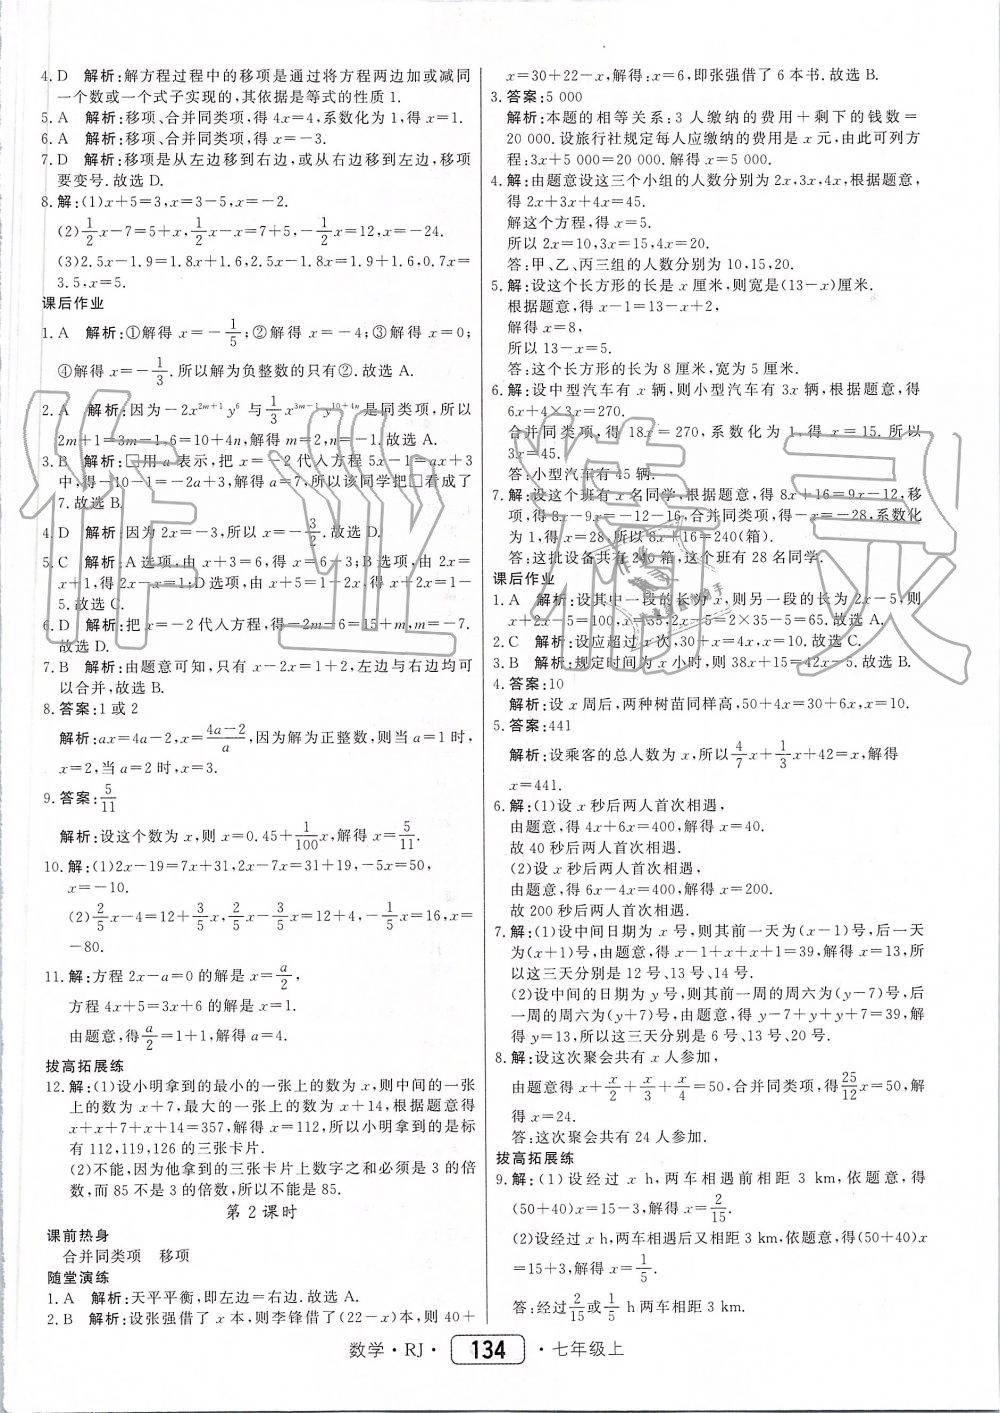 4. D 解析:解方程过程中的移项是通过将方程两边加或减同
一个数或一个式子实现的,其依据是等式的性质 1.
5. A 解析:移项、合并同类项,得 4x=4,系数化为 1,得 x=1.
6. A 解析:移项、合并同类项,得 x=-3.
7. D 解析:移项是从左边移到右边,或从右边移到左边,移项
要变号.故选 D.
8. 解:(1)x+5=3,x=3-5,x=-2.
(2)1/2x-7=5+x,1/2x-x=7+5,-1/2x=12,x=-24.
(3)2.5x-1.9=1.8x+1.6,2.5x-1.8x=1.9+1.6,0.7x=
3.5,x=5.
课后作业
1. A 解析:①解得 x=-1/5;②解得 x=-4;③解得 x=0;
④解得 x=-1/3.所以解为负整数的只有②.故选 A.
2. A 解析:因为-2x^{2m+1}y^6 与1/3x^{3m-1}y^{10+4n}是同类项,所以
2m+1=3m-1,6=10+4n,解得 m=2,n=-1.故选 A.
3. B 解析:□用 a 表示,把 x=-2 代入方程 5x-1=ax+3
中,得-10-1=-2a+3,解得 a=7,所以该同学把□看成了
7.故选 B.
4. D 解析:因为 2x=-3,所以 x=-3/2.故选 D.
5. C 解析:A 选项,由 x+3=6,得 x=6-3;B 选项,由 2x=
x+1,得 2x-x=1;D 选项,由 2x+5=x-1,得 2x-x=-1-
5.故选 C.
6. D 解析:把 x=-2 代入方程,得-2m-6=15+m,m=-7.
故选 D.
7. B 解析:由题意可知,只有 x-2x=1+2,左边与右边均可
以合并,故选 B.
8. 答案:1 或 2
解析:ax=4a-2,x=(4a-2)/a,因为解为正整数,则当 a=1 时,
x=2,当 a=2 时,x=3.
9. 答案:5/11
解析:设这个数为 x,则 x=0.45+1/100x,解得 x=5/11.
10. 解:(1)2x-19=7x+31,2x-7x=31+19,-5x=50,
x=-10.
(2)2/5x-4=12+3/5x,2/5x-3/5x=12+4,-1/5x=16,x=
-80.
11. 解:方程 2x-a=0 的解是 x=a/2,
方程 4x+5=3x+6 的解是 x=1.
由题意,得a/2=1+1,解得 a=4.
拔高拓展练
12. 解:(1)设小明拿到的最小的一张上的数为 x,则中间的一张
上的数为 x+7,最大的一张上的数为 x+14,根据题意得
x+x+7+x+14=357,解得 x=112,所以小明拿到的是标
有 112,119,126 的三张卡片.
(2)不能,因为他拿到的三张卡片上数字之和必须是 3 的倍
数,而 85 不是 3 的倍数,所以不能是 85.
第 2 课时
课前热身
合并同类项 移项
随堂演练
1. A 解析:天平平衡,即左边=右边.故选 A.
2. B 解析:设张强借了 x 本,则李锋借了(22-x)本,则 40+
x=30+22-x,解得:x=6,即张强借了 6 本书.故选 B.
3. 答案:5 000
解析:本题的相等关系:3 人缴纳的费用+剩下的钱数=
20 000.设旅行社规定每人应缴纳的费用是 x 元,由此可列方
程:3x+5 000=20 000.解得 x=5 000.
4. 解:由题意设这三个小组的人数分别为 2x,3x,4x,根据题意,
得 2x+3x+4x=45.
解这个方程,得 x=5.
所以 2x=10,3x=15,4x=20.
答:甲、乙、丙三组的人数分别为 10,15,20.
5. 解:设这个长方形的长是 x 厘米,则宽是(13-x)厘米.
根据题意,得 x-1=13-x+2,
解得 x=8,
所以 13-x=5.
答:这个长方形的长为 8 厘米,宽为 5 厘米.
6. 解:设中型汽车有 x 辆,则小型汽车有 3x 辆,根据题意,得
6x+4×3x=270.
合并同类项,得 18x=270,系数化为 1,得 x=15.所以
3x=45.
答:小型汽车有 45 辆.
7. 解:设这个班有 x 名同学,根据题意,得 8x+16=9x-12,移
项,得 8x-9x=-12-16,合并同类项,得-x=-28,系数化
为 1,得 x=28.所以 8x+16=240(箱).
答:这批设备共有 240 箱,这个班有 28 名同学.
课后作业
1. A 解析:设其中一段的长为 x,则另一段的长为 2x-5,则
x+2x-5=100,x=35,2x-5=2×35-5=65.故选 A.
2. C 解析:设应超过 x 次,30+x=4x,x=10.故选 C.
3. B 解析:规定时间为 x 小时,则 38x+15=42x-5.故选 B.
4. 答案:10
解析:设 x 周后,两种树苗同样高,50+4x=30+6x,x=10.
5. 答案:441
解析:设乘客的总人数为 x,所以4/7x+1/3x+42=x,解得
x=441.
6. 解:(1)设 x 秒后两人首次相遇,
由题意,得 4x+6x=400,解得 x=40.
故 40 秒后两人首次相遇.
(2)设 x 秒后两人首次相遇,
由题意,得 6x-4x=400,解得 x=200.
故 200 秒后两人首次相遇.
7. 解:(1)设中间日期为 x 号,则其前一天为(x-1)号,后一天
为(x+1)号,由题意,得 x-1+x+x+1=39,解得 x=13,所
以这三天分别是 12 号、13 号、14 号.
(2)设中间的日期为 y 号,则其前一周的周六为(y-7)号,后
一周的周六为(y+7)号,由题意,得 y-7+y+y+7=39,解
得 y=13,所以这三天分别是 6 号、13 号、20 号.
8. 解:设这次聚会共有 x 人参加,
由题意得 x+x/2+x/3+x/4=50,合并同类项,得25/12x=50,解
得 x=24.
答:这次聚会共有 24 人参加.
拔高拓展练
9. 解:(1)设经过 x h,两车相遇前相距 3 km,依题意,得
(50+40)x=15-3,解得 x=2/15.
(2)设经过 x h,两车相遇后又相距 3 km,依题意,得(50+40)x
=15+3,解得 x=1/5.
答:经过2/15或1/5 h两车相距 3 km.
数学·RJ· 134 ·七年级上
作业精灵